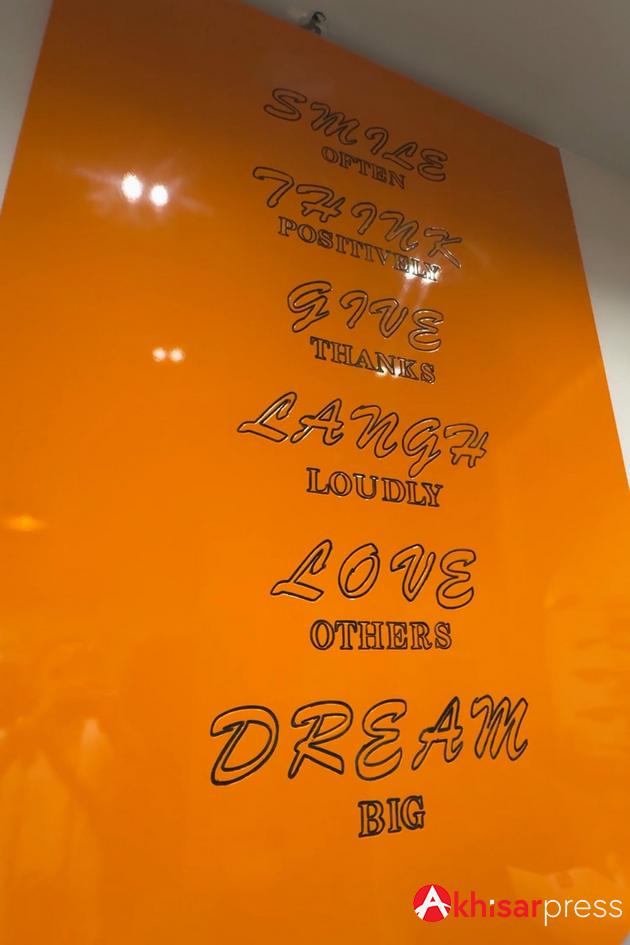 SMILE
OFTEN
THINK
POSITIVELY
GIVE
THANKS
LANGH
LOUDLY
LOVE
OTHERS
DREAM
BIG
Akhisarpress